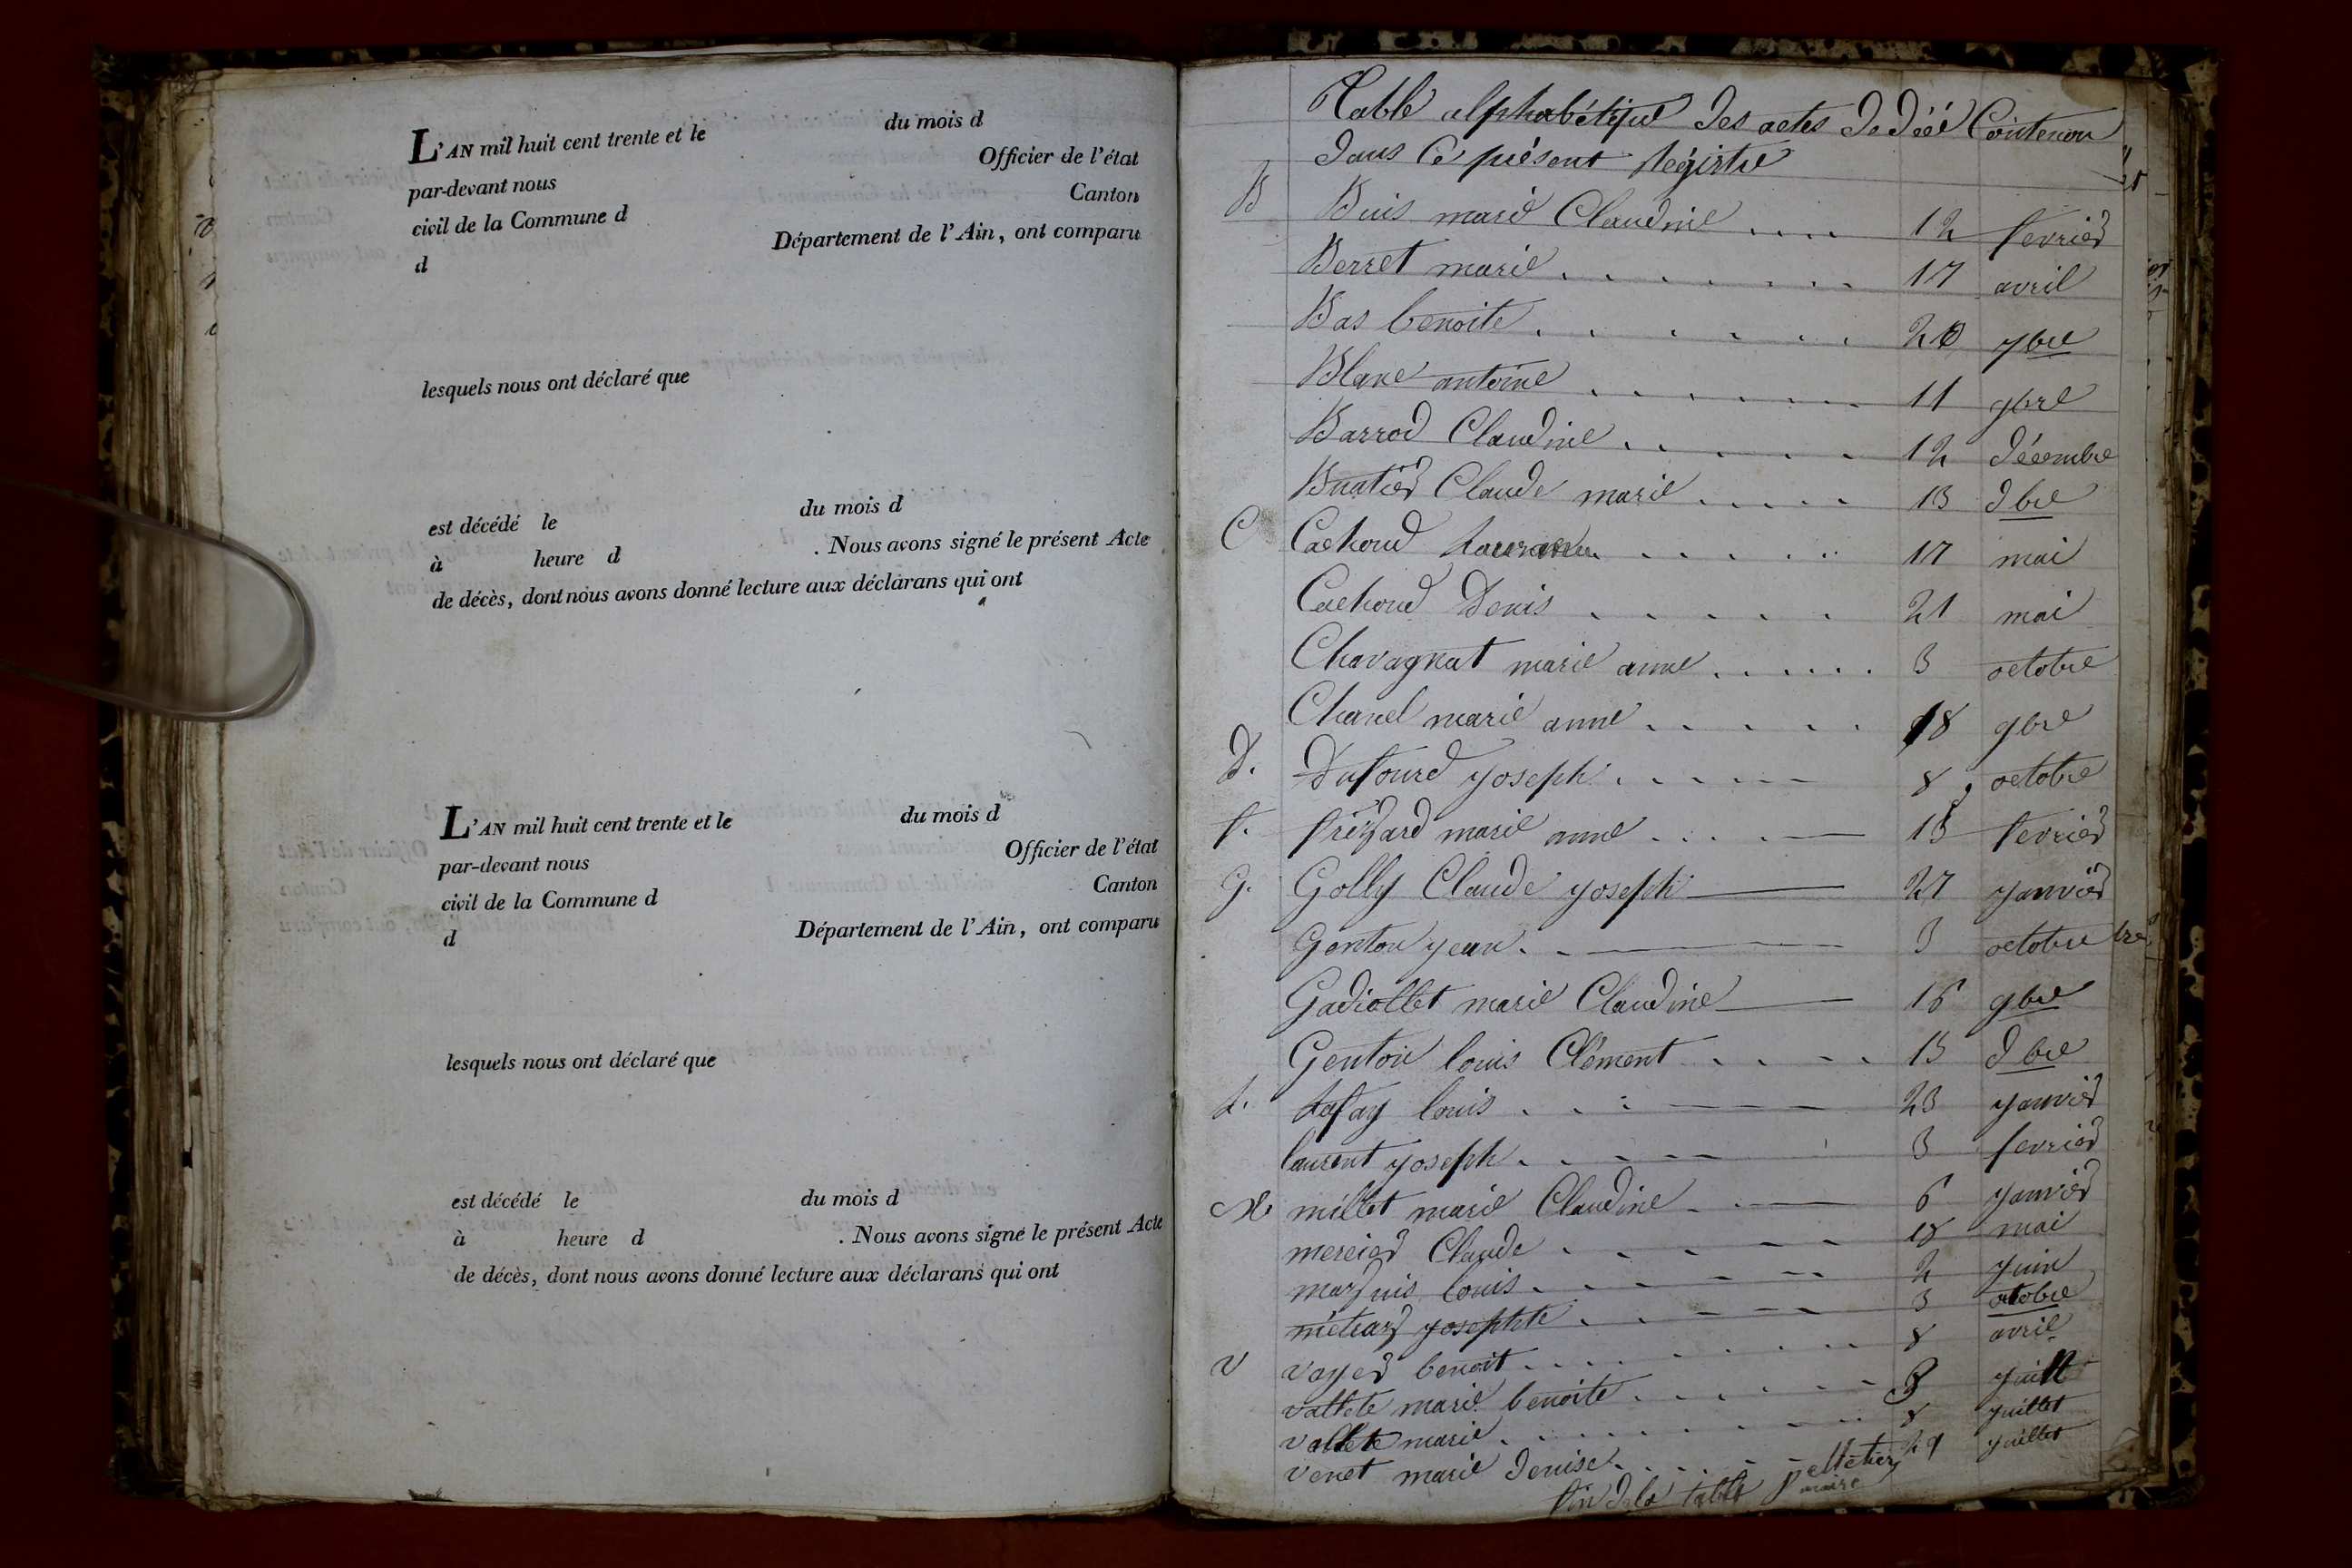 L'AN mil huit cent trente et le du mois d
par-devant nous Officier de l'état
civil de la Commune d Canton
d Département de l'Ain, ont comparu
lesquels nous ont déclaré que
est décédé le du mois d
à heure d . Nous avons signé le présent Acte
de décès, dont nous avons donné lecture aux déclarans qui ont
L'AN mil huit cent trente et le du mois d
par-devant nous Officier de l'état
civil de la Commune d Canton
d Département de l'Ain, ont comparu
lesquels nous ont déclaré que
est décédé le du mois d
à heure d . Nous avons signé le présent Acte
de décès, dont nous avons donné lecture aux déclarans qui ont
Table alphabétique des actes de Contenu
dans Ce présent Régistre
B Buis marie Claudine .... 12 fevrier
Berret marie ....... 17 avril
Bas benoite ...... 20 7bre
Blanc antoine ...... 11 9bre
Barrod Claudine ..... 12 décembre
Buatier Claude marie ..... 13 dbre
C Cachoud ..... 17 mai
Cachoud Denis ..... 21 mai
Chavagnat marie anne ...... 3 octobre
Chanel marie anne ..... 18 9bre
D. Dufourd yoseph ..... 8 octobre
f. marie anne .... 15 fevrier
G. Golly Claude yoseph 27 yanvier
Genton yean 3 octobre
Gadiollet marie Claudine 16 9bre
Genton louis Clément .... 15 dbre
L. Lafay louis ... 23 yanvier
laurent yoseph ..... 3 fevrier
M millet marie Claudine 6 yanvier
mercier Claude ..... 18 mai
marquis louis ..... 2 yuin
yosephte ..... 3 octobre
V voyer benoit ........ 8 avril
vallete marie benoite ...... 3
vallete marie ........ 8 yuillet
venet marie denise ...... 29 yuillet
fin de la table pelletier
maire